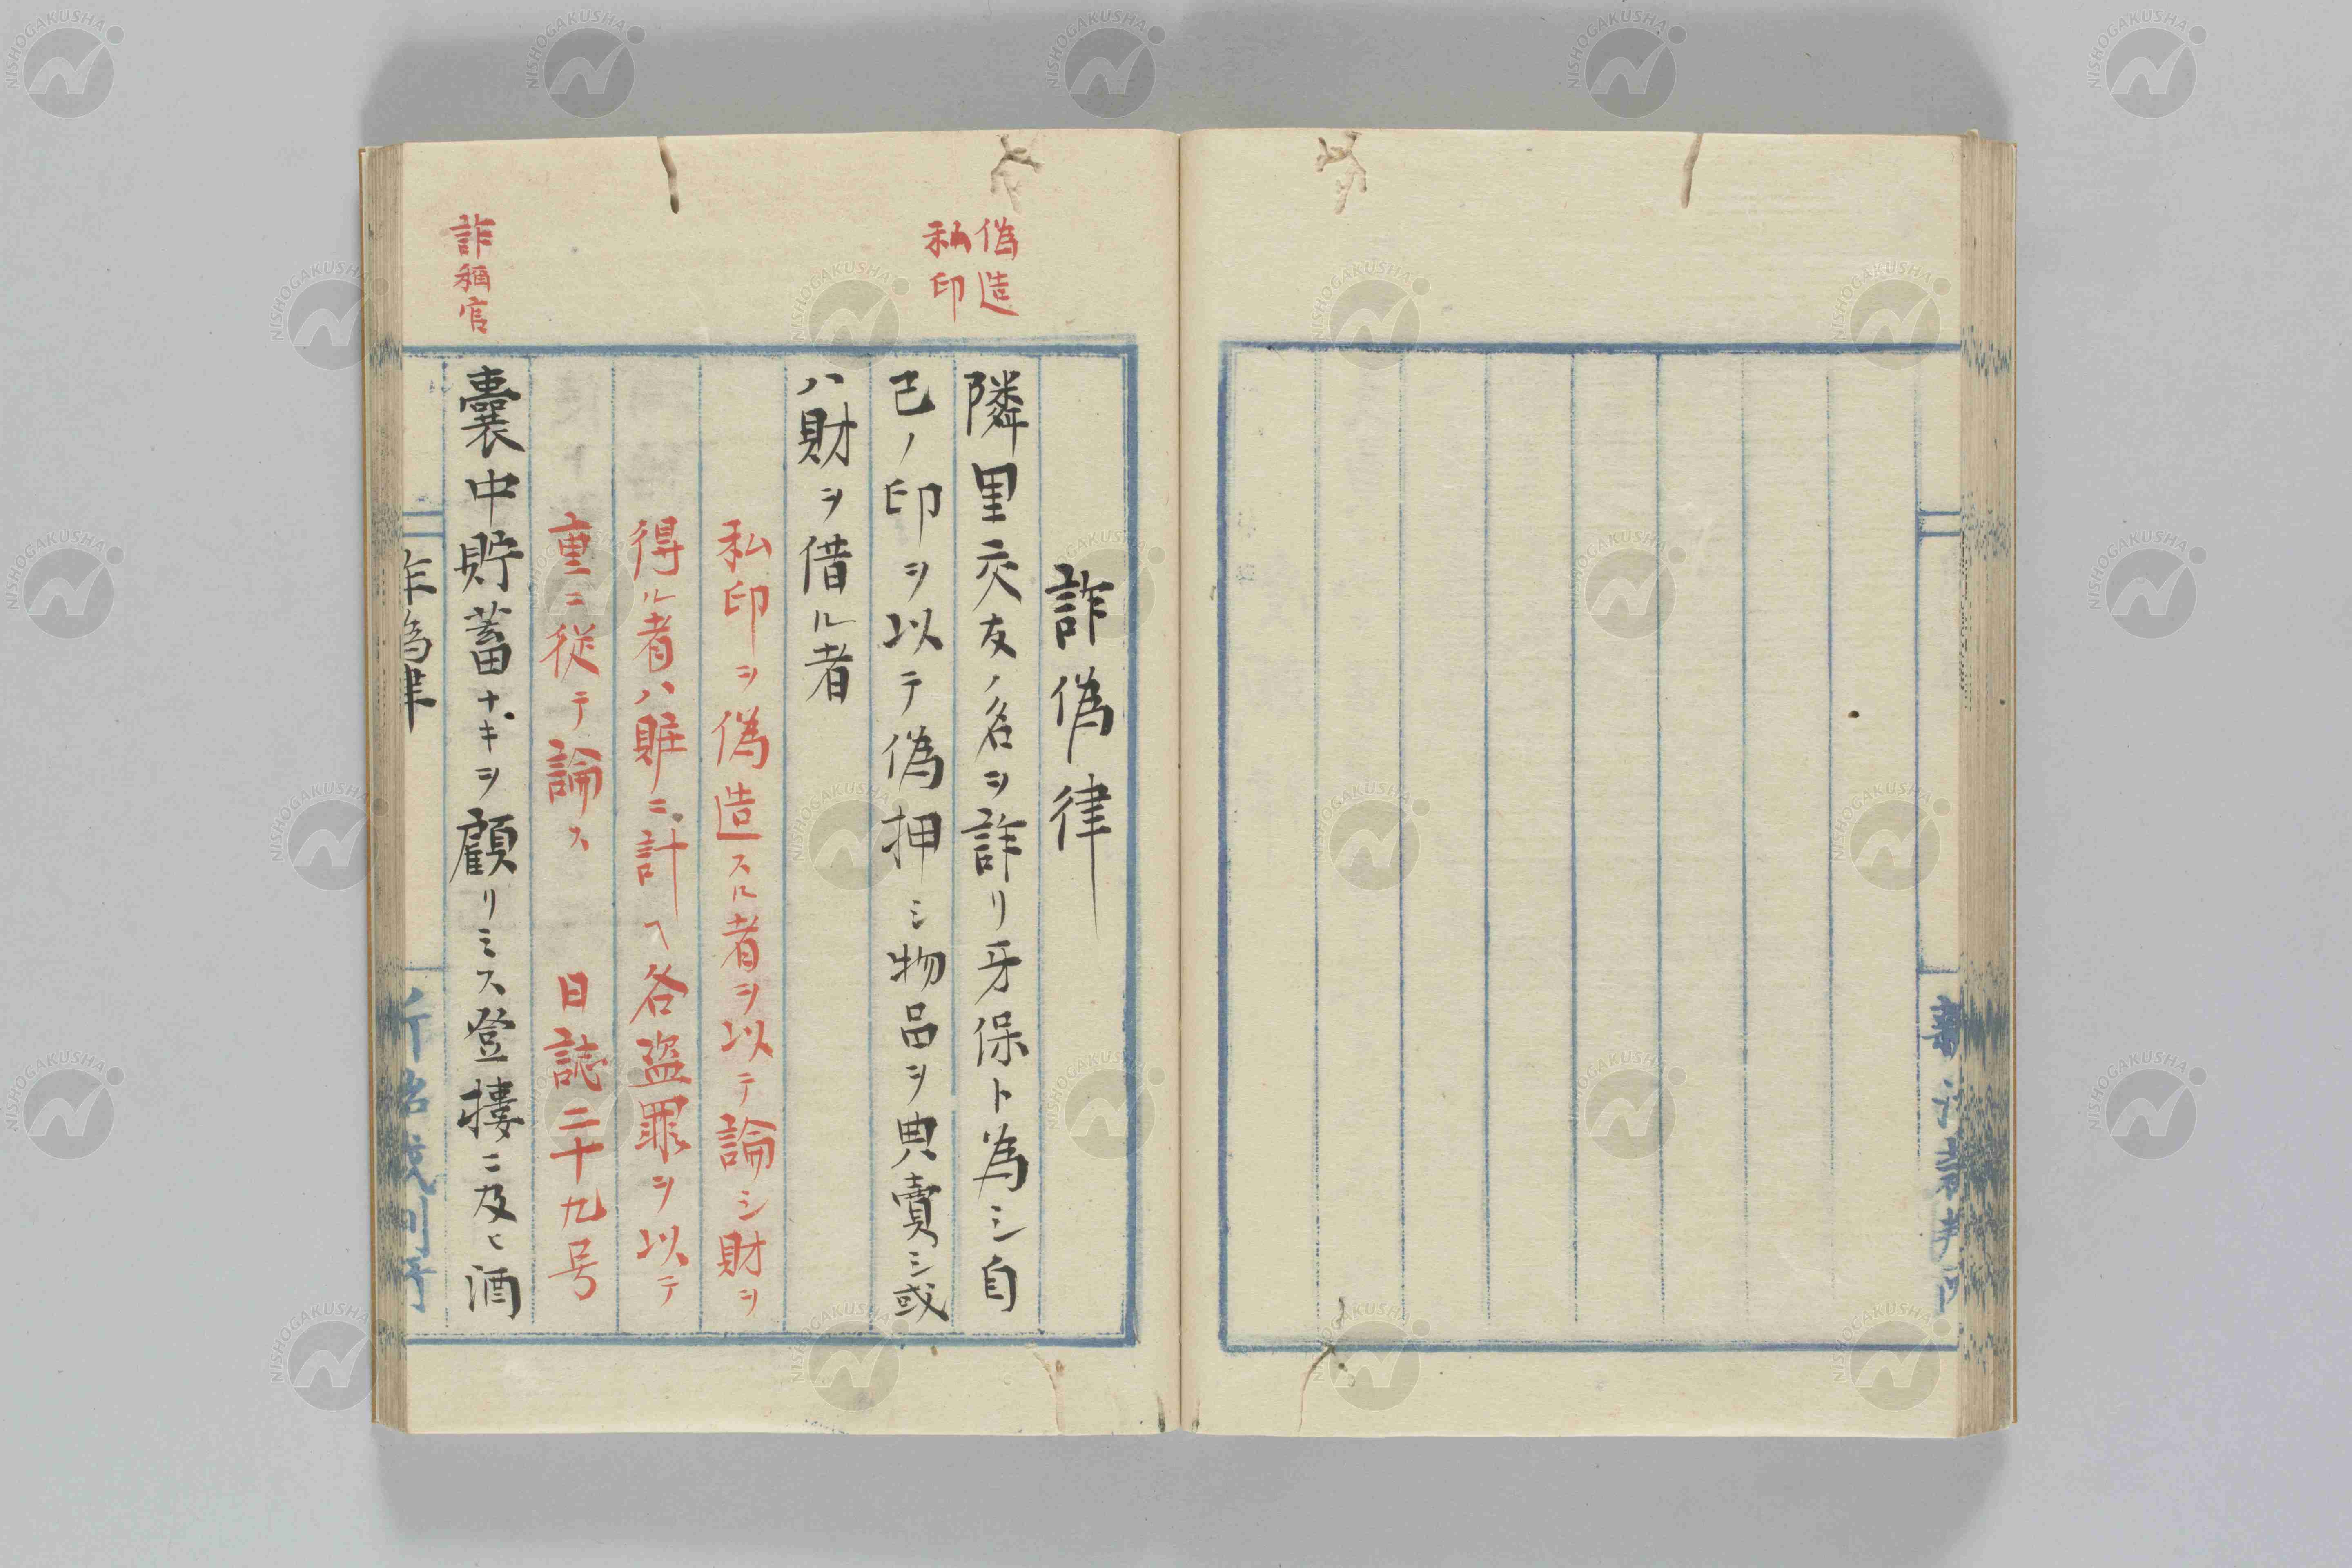 偽造
私印
詐称官
詐偽律
隣里交友ノ名ヲ詐リ牙保ト為シ自
己ノ印ヲ以テ偽押シ物品ヲ典賣シ或
ハ財ヲ借ル者
私印ヲ偽造スル者ヲ以テ論シ財ヲ
得ル者ハ賍ニ計ヘ各盗罪ヲ以テ
重ニ従テ論ス 日誌二十九号
囊中貯蓄ナキヲ顧リミス登樓ニ及ヒ酒
詐偽律
NISHOGAKUSHA